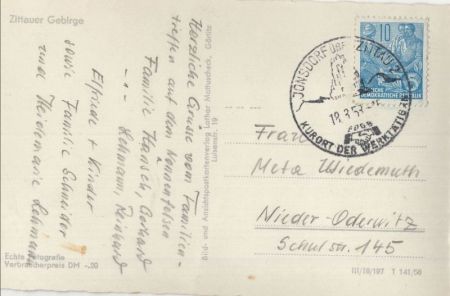 Zittauer Gebirge
Herzliche Grüsse vom Familien-
treffen auf dem Nonnenfelsen
Familie Hänsch, Gerhard
-"- Lehmann, Reinhard
Elfriede + Kinder
sowie Familie Schneider
und Heidemarie Lehmann
Bild- und Ansichtspostkartenverlag Lothar Mathurscheck, Görlitz
Luisenstr. 19
Echte Fotografie
Verbraucherpreis DM -.20
10
DEUTSCHE
DEMOKRATISCHE REPUBLIK
JONSDORF ÜBER ZITTAU 2
18.8.5
FDGB
KURORT DER WERKTÄTIGEN
Frau
Meta Wiedemuth
Nieder-Oderwitz
Schulstr. 145
III/18/197 T 141/56